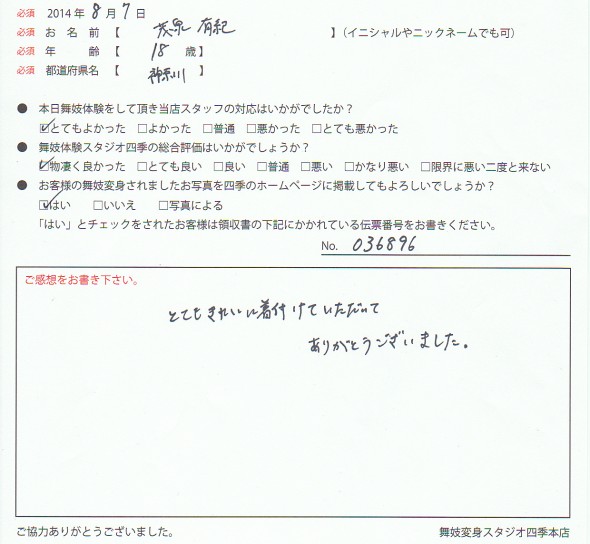 必須 2014年 8月7日
必須 お名前【 茂泉 有紀 】(イニシャルやニックネームでも可)
必須 年齢【 18 歳】
必須 都道府県名【 神奈川 】
● 本日舞妓体験をして頂き当店スタッフの対応はいかがでしたか？
☑とてもよかった □よかった □普通 □悪かった □とても悪かった
● 舞妓体験スタジオ四季の総合評価はいかがでしょうか？
☑物凄く良かった □とても良い □良い □普通 □悪い □かなり悪い □限界に悪い二度と来ない
● お客様の舞妓変身されましたお写真を四季のホームページに掲載してもよろしいでしょうか？
☑はい □いいえ □写真による
「はい」とチェックをされたお客様は領収書の下記にかかれている伝票番号をお書きください。
No. 036896
ご感想をお書き下さい。
とてもきれいに着付けていただいて
ありがとうございました。
ご協力ありがとうございました。 舞妓変身スタジオ四季本店